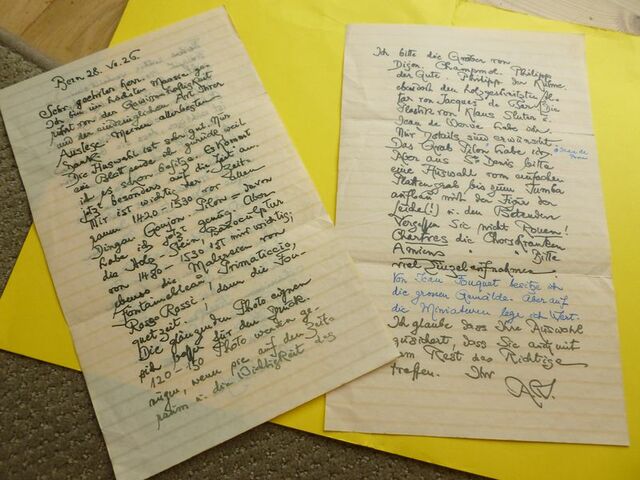 Bern 28. VI. 26.
Sehr geehrter Herr
Ich bin im höchsten Maasse ge-
rührt von der Gewissenhaftigkeit
und der Art Ihrer
Auslese. Meinen allerbesten
Dank.
Die Auswahl ist sehr gut. Nur
ein Blatt sende ich zurück weil
ich es schon besitze. Es kommt
jetzt besonders auf die Zeit an.
Mir ist wichtig der
ganze 1420-1530 vor allen
Dingen Goujon, Pilon = davon
habe ich genug. Aber
die Holz-Stein,
von 1420-1530 ist mir wichtig,
ebenso die Malereien von
Fontainebleau, Primaticcio,
Rosso Rossi, dann die Fou-
quetzeit.
Die glänzenden Photo eignen
sich besser für den Druck
120-150 Photo werden ge-
nügen, wenn sie auf den Zeit-
raum u. die Wichtigkeit des
Ich bitte die Gräber von
Dijon, Champmol, Philipp
der Gute, Philipp der Kühne
ebenso den holzgeschnitzten Al-
tar von Jacques de Baerze. Die
Plastik von Klaus Sluter u.
Jean de Werve habe ich
Nur Details sind erwünscht
Das Grab Pilon habe ich
Aber aus St Denis bitte
eine Auswahl vom einfachen
Plattengrab bis zum Tumba
aufbau mit den Figur der
Leiche(!) u. den Betenden
Vergessen Sie nicht Rouen!
Chartres die Chorschranken
Amiens " Bitte
viel Einzelaufnahmen.
Von Jean Fouquet besitze ich
die grossen Gemälde. Aber auf
die Miniaturen lege ich Wert.
Ich glaube dass Ihre Auswahl
zusichert, dass Sie auch mit
dem Rest das Richtige
treffen. Ihr